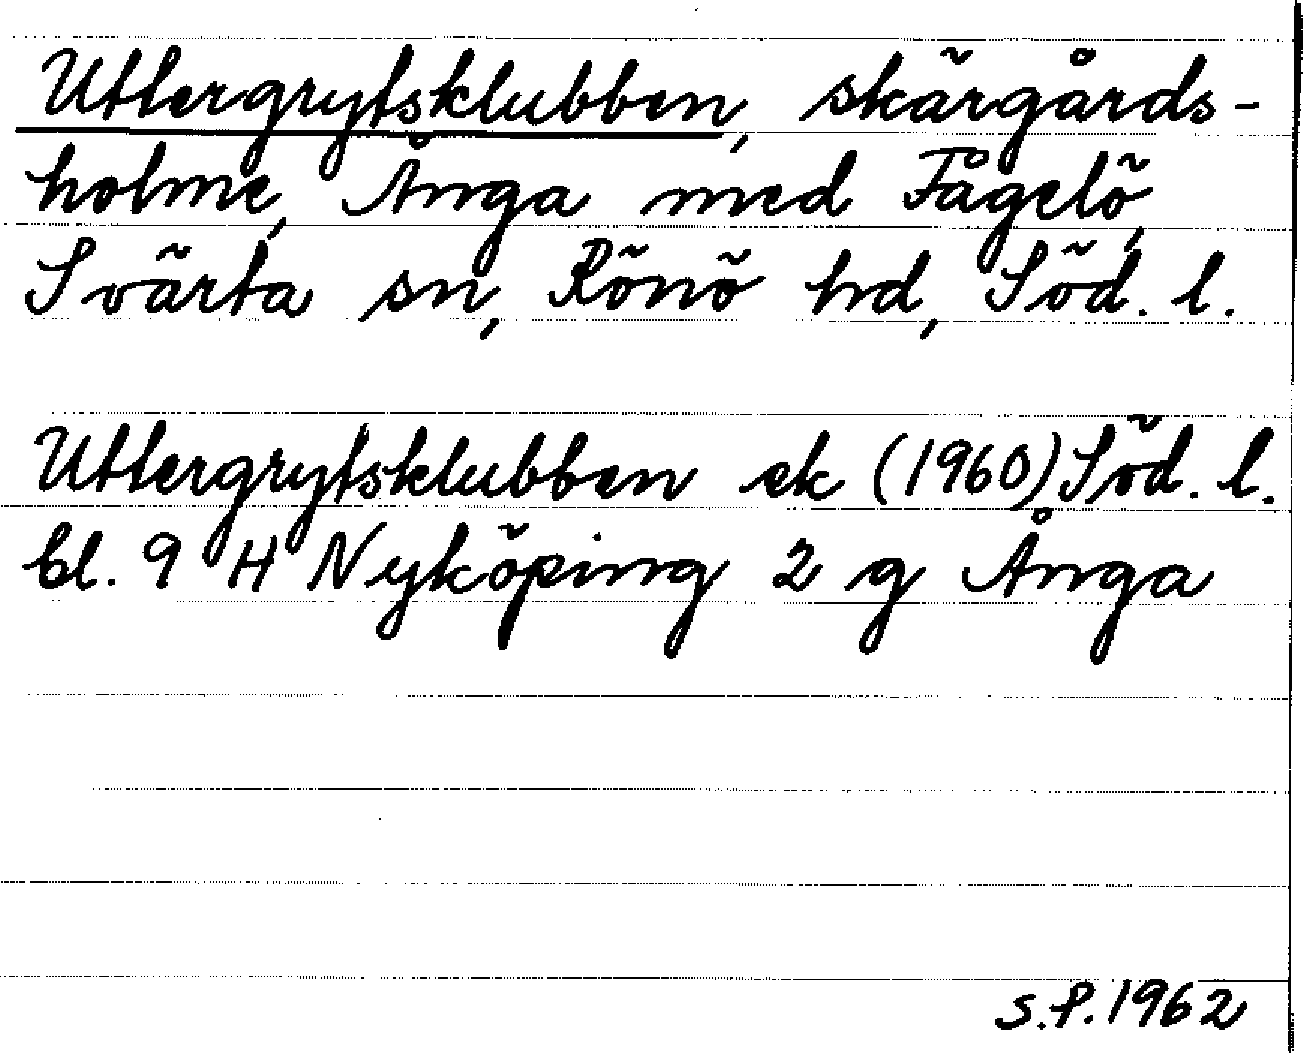 Uttergrytsklubben, skärgårds-
holme, Ånga med Fågelö,
Svärta sn, Rönö hd, Söd. l.
Uttergrytsklubben ek (1960) Söd. l.
bl. 9 H Nyköping 2 g Ånga
S.P. 1962